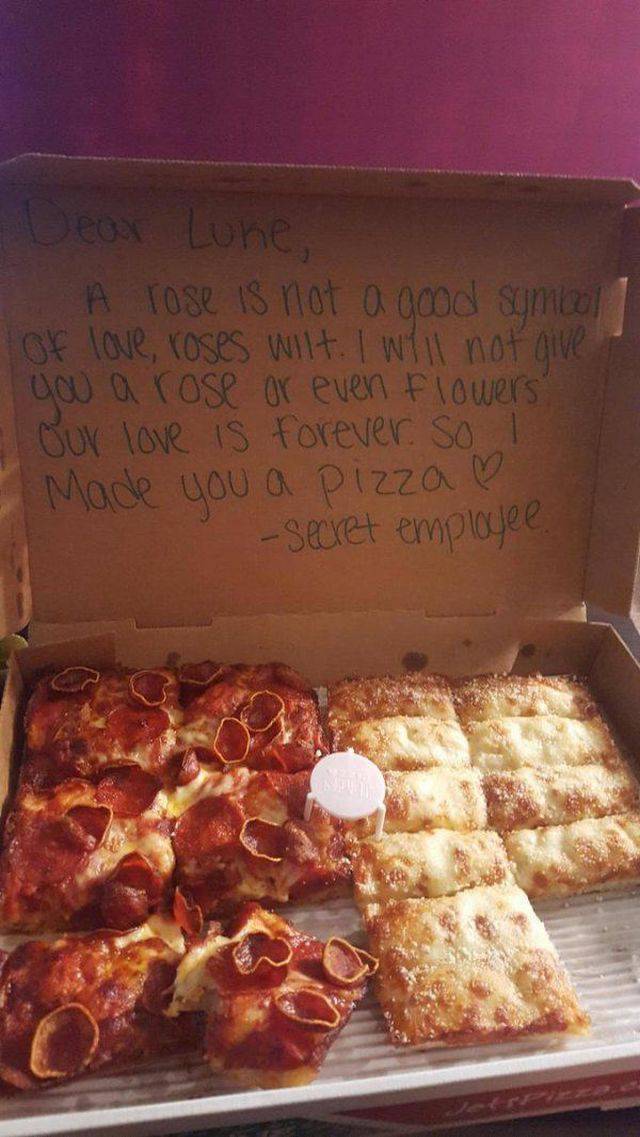 Dear Luke,
A rose is not a good symbol
of love, roses wilt. I will not give
you a rose or even flowers
Our love is forever. So I
Made you a pizza ♡
-secret employee.
Jet's Pizza